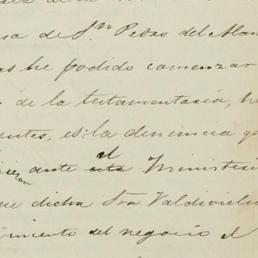 sa de Sn Pedro del Alam
as he podido comenzar
de la testamentaría, he
entes, es la denuncia q
ante el Ministeri
ue dicha Sra Valdiviel
imiento del negocio el